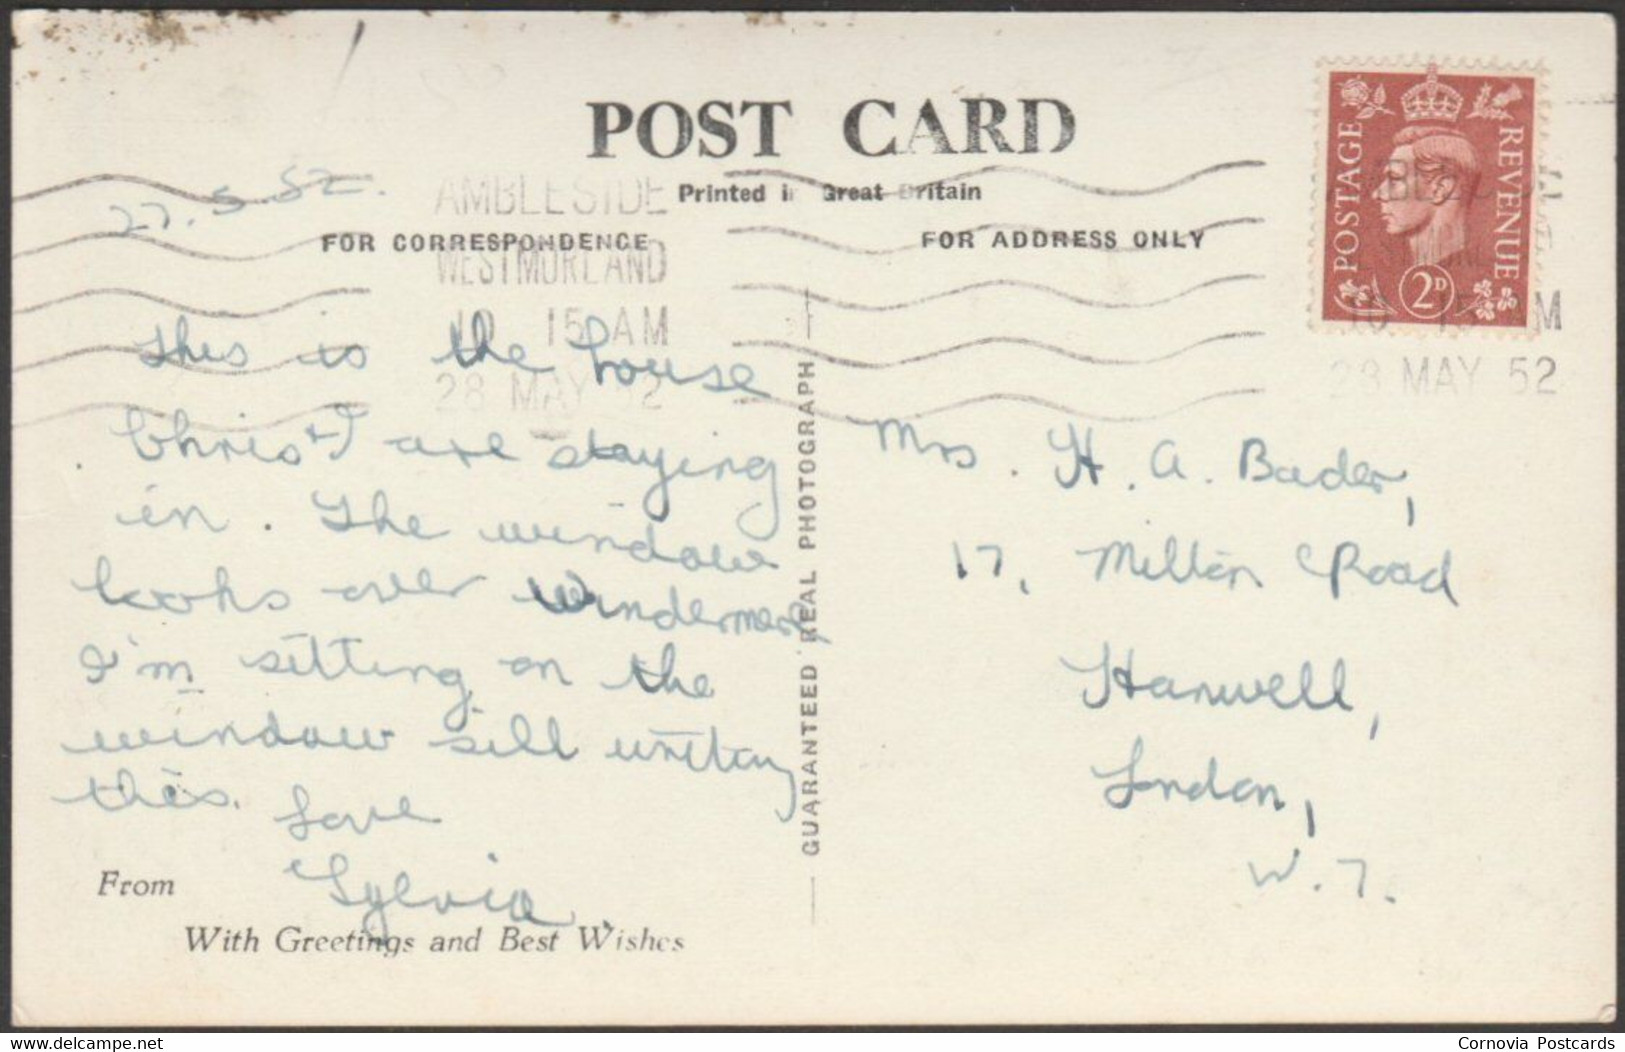 POST CARD
Printed in Great Britain
27.5.52.
FOR CORRESPONDENCE
FOR ADDRESS ONLY
AMBLESIDE
WESTMORLAND
10 15 AM
28 MAY 52
POSTAGE REVENUE
2D
10 15 AM
28 MAY 52
This is the house
Chris & I are staying
in. The window
looks over Windermere
I'm sitting on the
window sill writing
this.
Love
Sylvia
From
With Greetings and Best Wishes
GUARANTEED REAL PHOTOGRAPH
Mrs. H. A. Bader,
17, Milton Road
Hanwell,
London,
W. 7.
delcampe.net
Cornovia Postcards